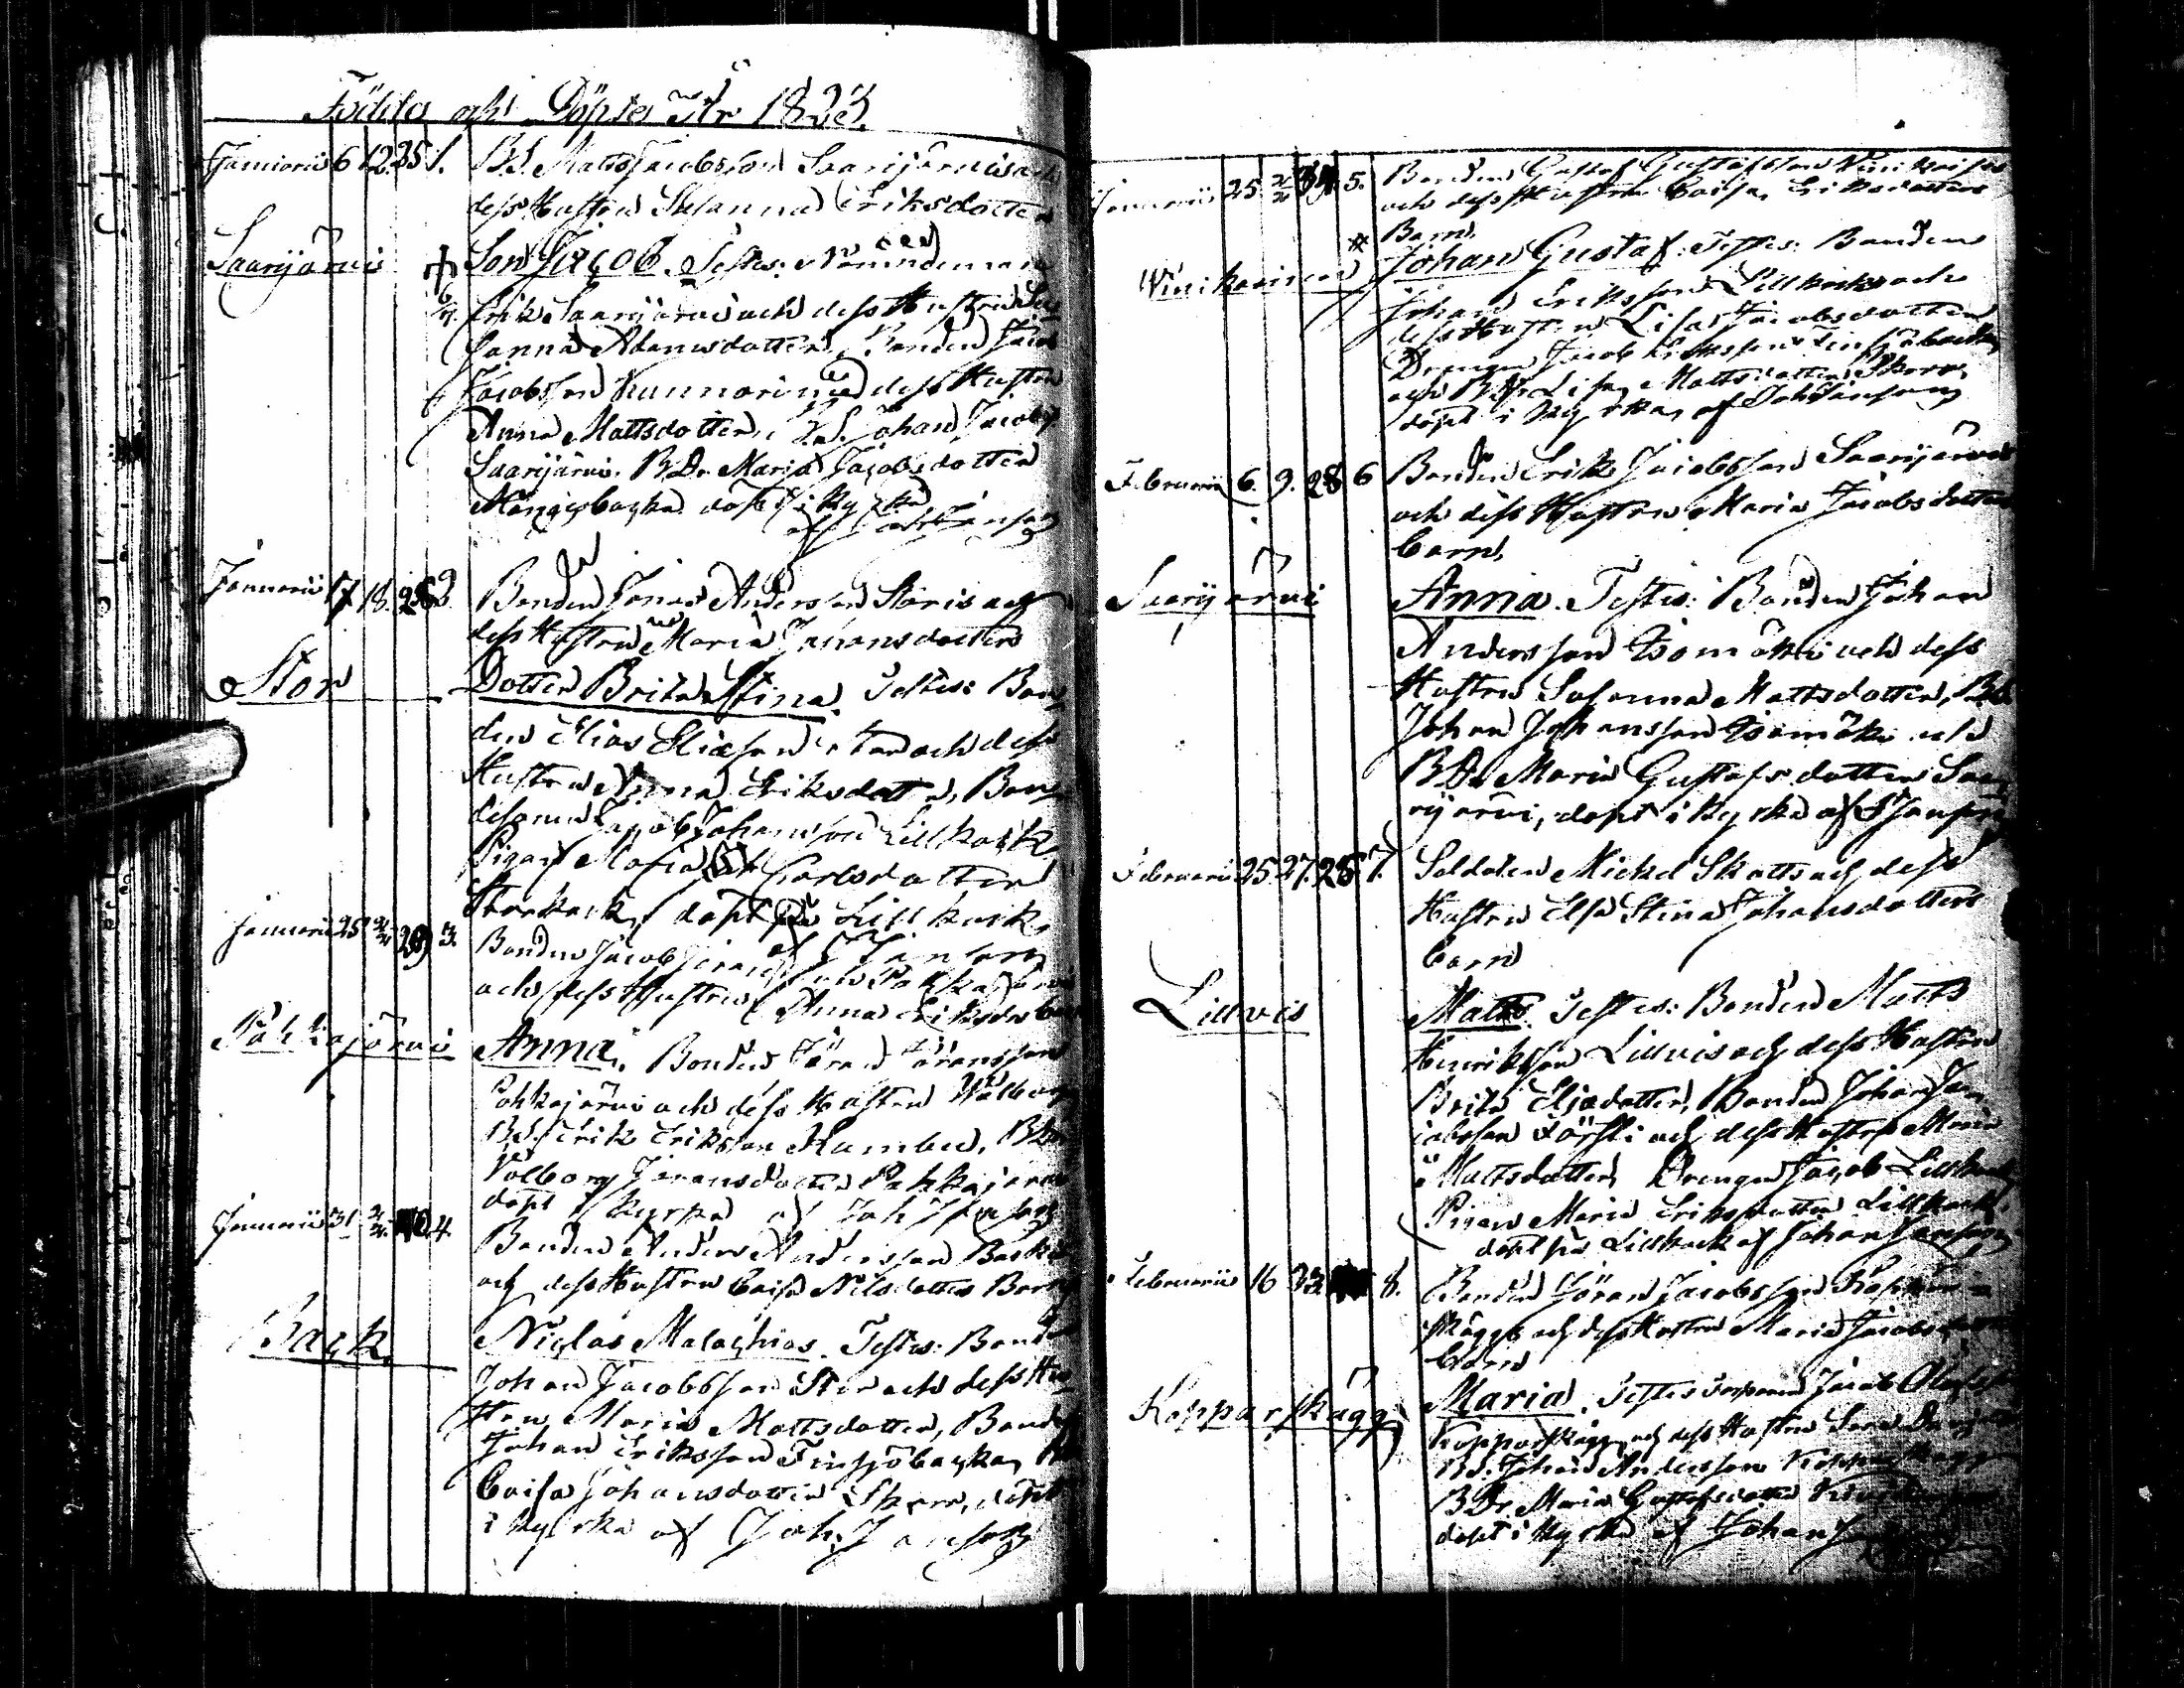 Födde och Döpte År 1823.
Januarii 6 12 35 1. B.S. Matts Jacobsson Saarijärvi och
dess Hustru Susanna Eriksdotter
Saarijärvi Son Jacob. Testes: Nämndeman
Erik Saarijärvi och dess Hustru Su
sanna Adamsdotter, Bonden Jacob
Jacobsson dess Hustru
Anna Mattsdotter, B.S. Johan Jacobs.
Saarijärvi. B.Dr Maria Jacobsdotter
döpt i kyrka
af Joh Janson
Januarii 17 18. 28 2. Bonden Jonas Andersson Storis och
dess Hustru Maria Johansdotter
Stor Dotter Brita Stina. Testes: Bon
den Elias Eliæson Stor och dess
Hustru Anna Eriksdotter, Bon
desonen Jacob Johansson Lillkack,
Pigan Carlsdotter
Storkack, döpt på Lillkack,
af J Janson
Januarii 25 2/2 29 3. Bonden Jacob Påhkajärvi
och dess Hustru Anna Eriksdr barn
Påhkajärvi Anna. Bonden Jöran Jöransson
Påhkajärvi och dess Hustru Walborg
B.S. Erik Eriksson Humbu, B.Dr
Valborg Jöransdotter Pahkajärvi
döpt i kyrka af Joh Janson
Januarii 31 2/2 40 4. Bonden Anders Andersson Backa
och dess Hustru Caisa Nilsdotter Barn
Back Niclas Malachias. Testes: Bonden
Johan Jacobsson Stor och dess Hu
stru Maria Mattsdotter, Bonden
Johan Eriksson Finsjöbacka,
Caisa Johansdotter Skarn, döpt
i kyrka af Joh. Janson
Januarii 25 2/2 34 5. Bonden Gustaf Gustafsson Vinikainen
och dess Hustru Caisa Eriksdotters
Barn.
Winikainen Johan Gustaf: Testes: Bonden
Johan Eriksson Lillkack och
dess Hustru Lisa Jacobsdotter
Drengen Jacob Eriksson Finsjöbacka
och B.Dr Lisa Mattsdotter Skarn,
döpt i kyrka af Joh Janson
Februarii 6. 9. 28 6 Bonden Erik Jacobsson Saarijärvi
och dess Hustru Maria Jacobsdotter
barn,
Saarijärvi Anna. Testes: Bonden Johan
Andersson Isomäki och dess
Hustru Susanna Mattsdotter, B.S.
Johan Johansson Isomäki och
B.Dr Maria Gustafsdotter Saa
rijärvi, döpt i kyrka af J Janson
Februarii 25. 27. 28 7. Soldaten Mickel Skatts och dess
Hustru Elsa Stina Johansdotters
barn
Lillvis Matts. Testes: Bonden Matts
Henriksson Lillvis och dess Hustru
Brita Eliædotter, Bonden Johan Ja
cobsson och dess Hustru Maria
Mattsdotter, Drengen Jacob Lillkack
Pigan Maria Eriksdotter Lillkack.
döpt på Lillkack af Johan Janson
Februarii 16 23. 8. Bonden Jöran Jacobsson Koppar-
skägg och dess Hustru Maria Jacobsdotters
barn
Kopparskägg Maria. Testes Jacob
Kopparskägg och dess Hustru
B.S. Johan Andersson Kopparskägg
B.Dr Maria Gustafsdotter
döpt i kyrka af Johan Janson